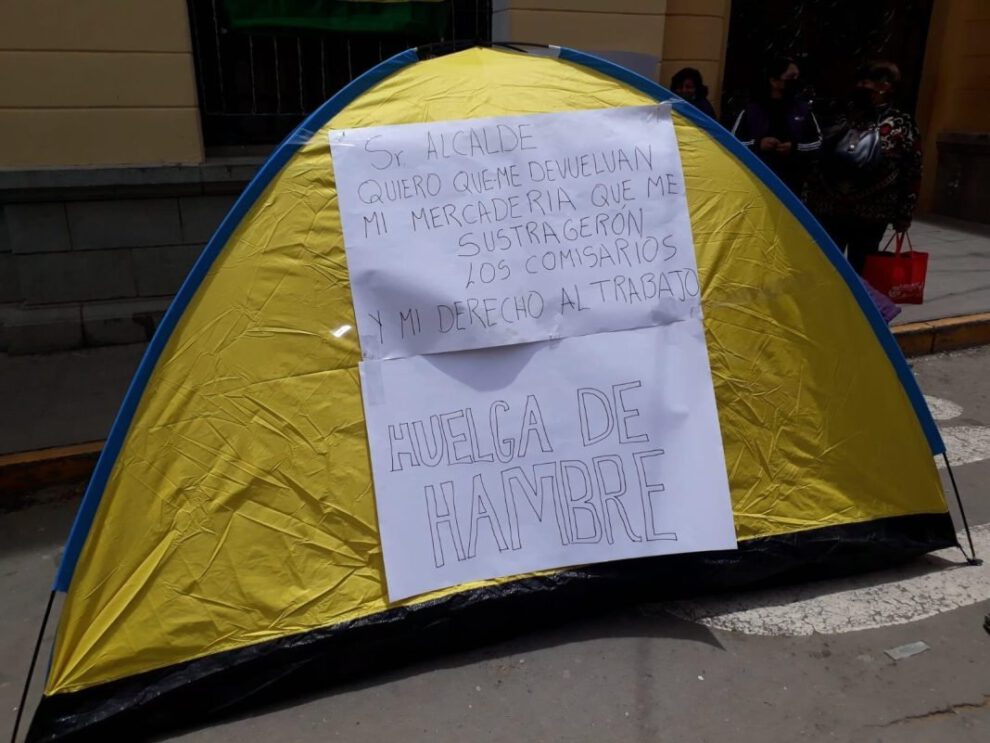 Sr. ALCALDE
QUIERO QUE ME DEVUELVAN
MI MERCADERIA QUE ME
SUSTRAGERÓN
LOS COMISARIOS
Y MI DERECHO AL TRABAJO
HUELGA DE
HAMBRE